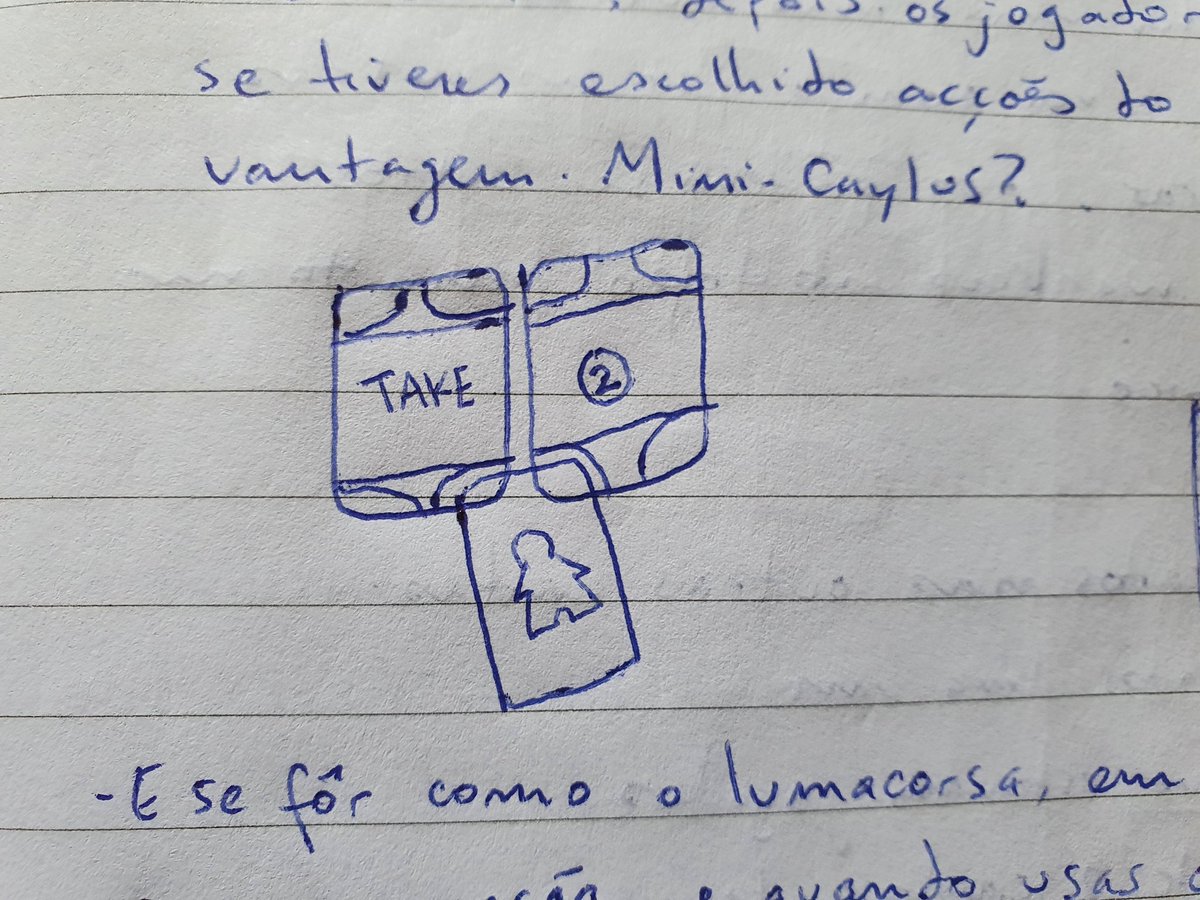 depois os jogado
se tiveres escolhido acções do
vantagem. Mini-Caylus?
TAKE
2
- E se fôr como o lumacorsa, em
e quando usas